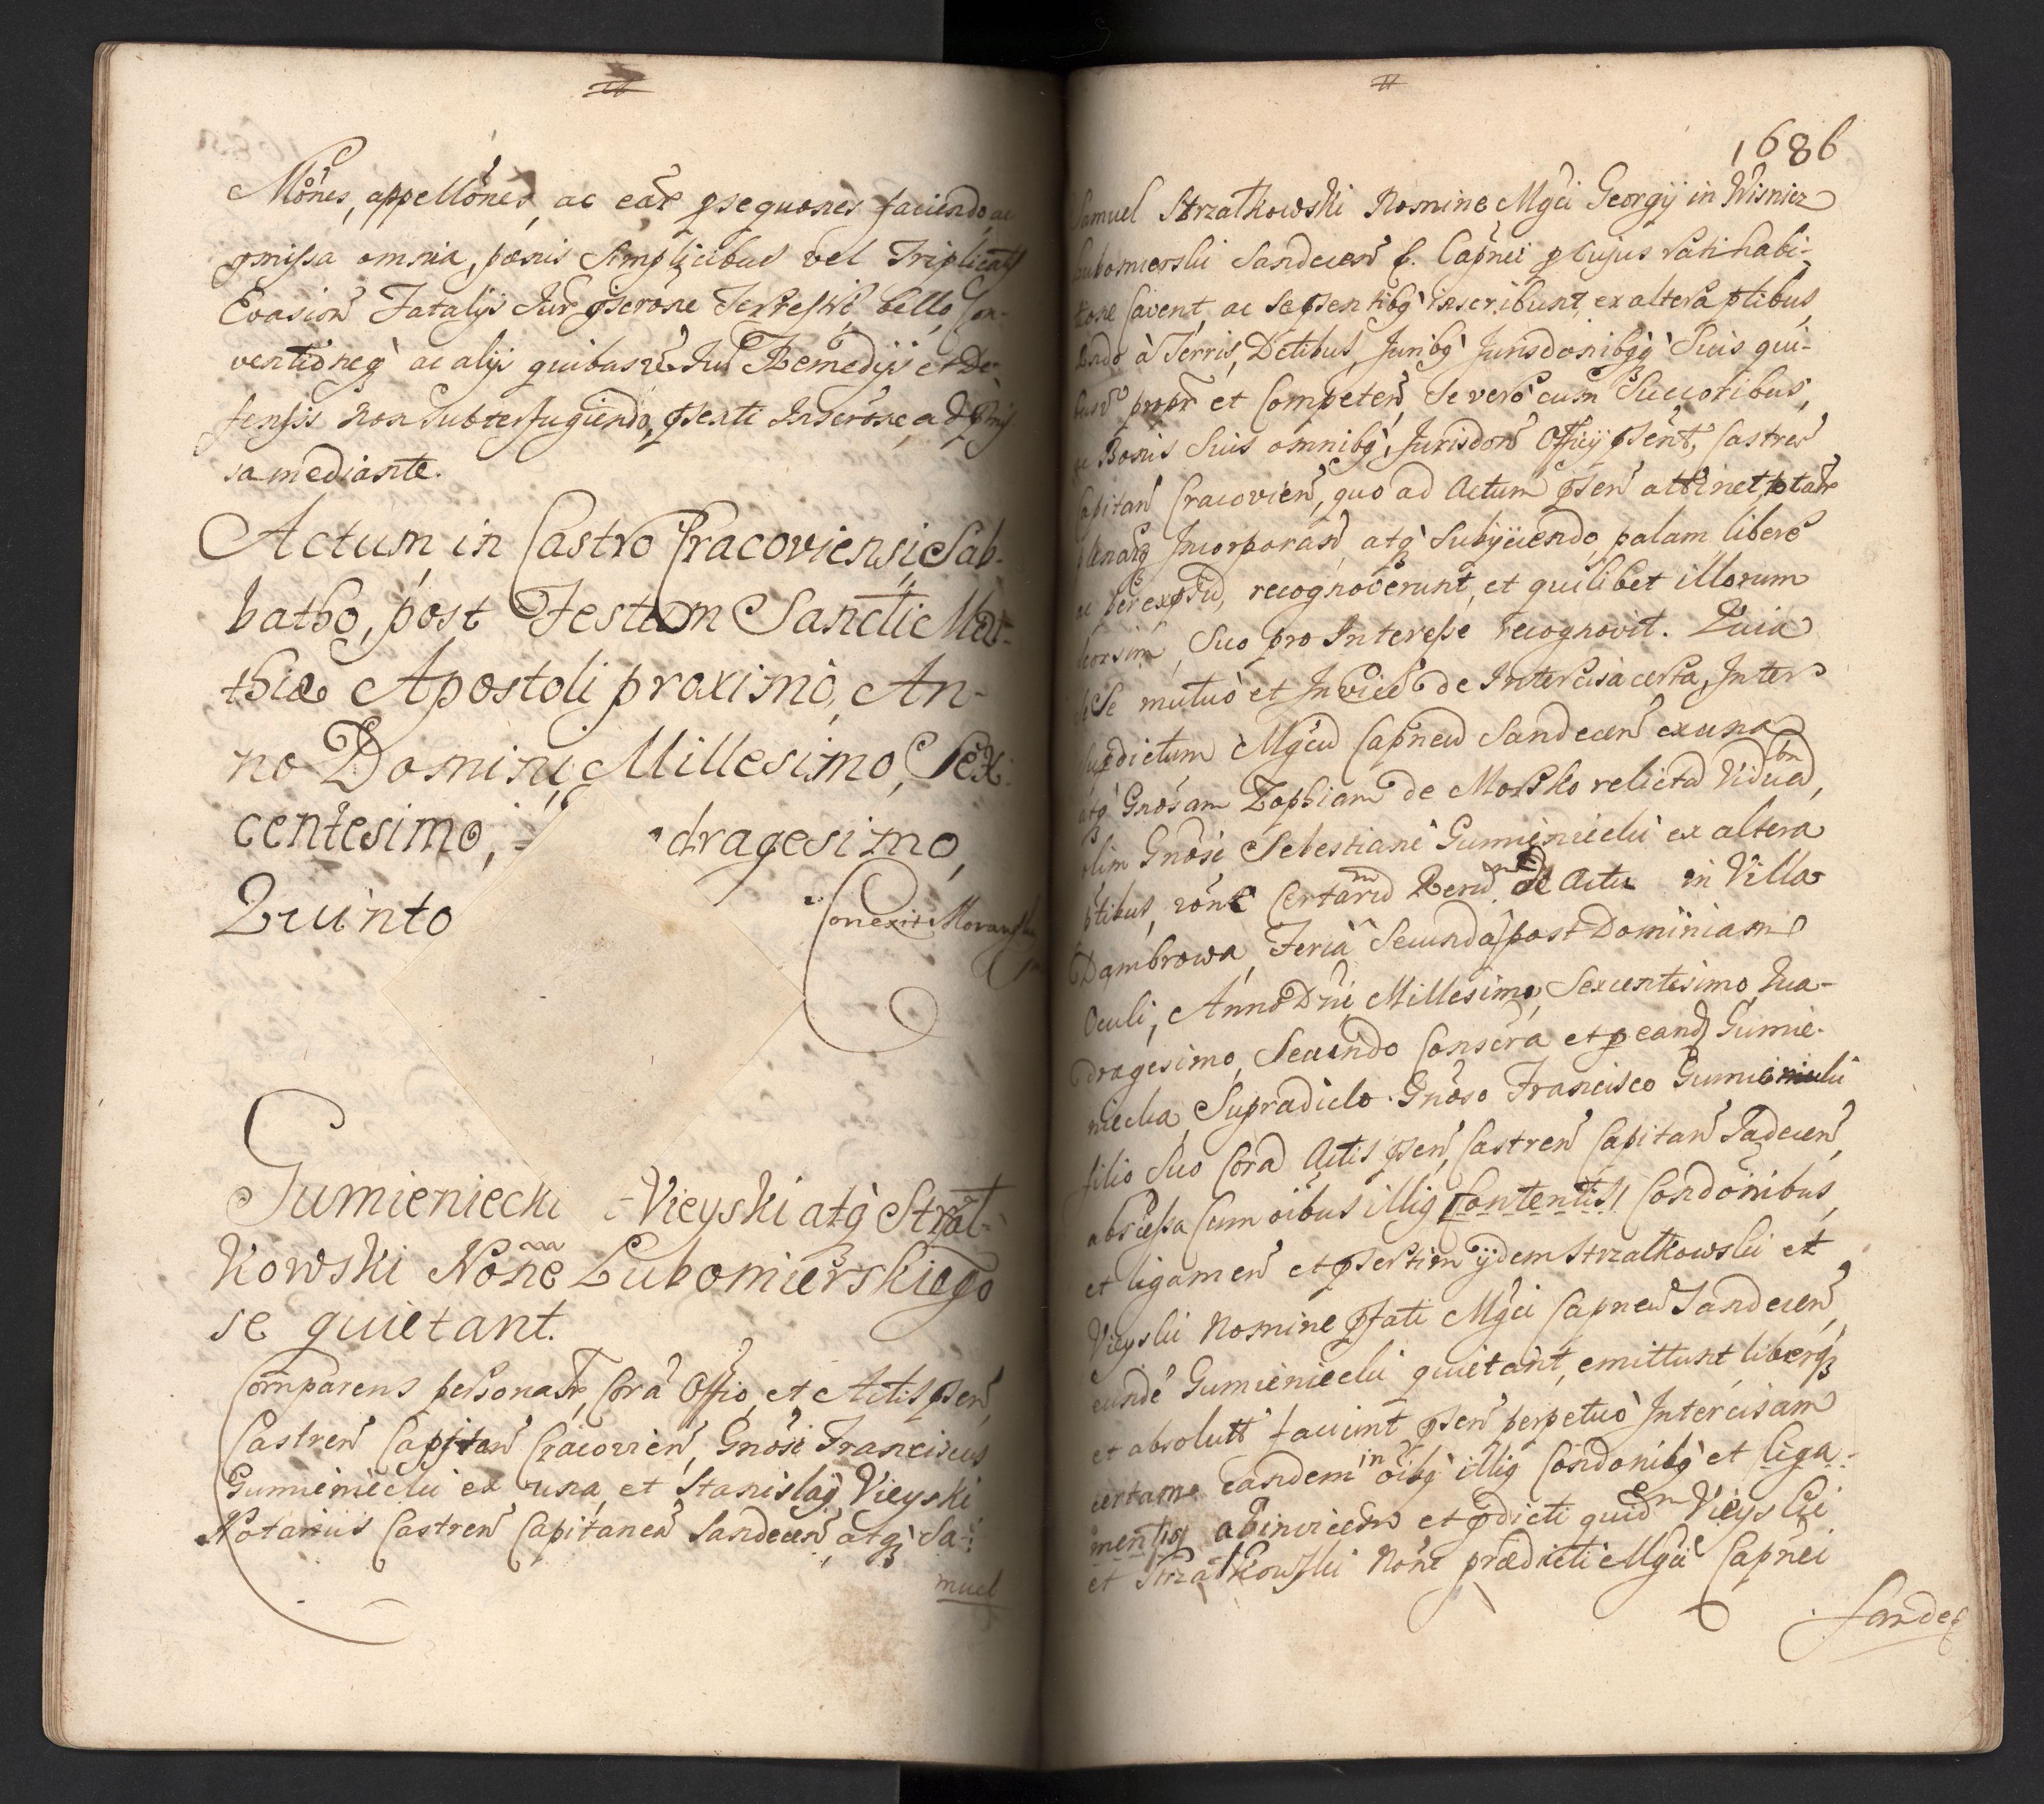 Mönes, appellönes, ac eaŕ psequones faciendo, ac
pmissa omnia, pænis Simplicibus vel Triplicatis
Evasioń Fatalijs Jur pscröne Terrestri, bello, Con-
ventioneq̀ ac alijs quibusvis Jur Remedijs et De-
fensis non subterfugiendo, psenti Inscröne ad pmis
sa mediante.
Actum in Castro Cracoviensi Sab-
batho, post Festum Sancti Mat-
thiæ Apostoli proximo, An-
no Domini Millesimo, Sex-
centesimo, dragesimo,
Quinto
Conexit
Gumieniecki Vieyski atq̀ Strzał-
kowski Noñe Lubomierskiego
se quietant.
Comparens personaŕ, Corá Offio, et Actis psen,
Castreń Capitań Cracovień, Gnösi Franciscus
Gumieniecki ex una, et Stanislaq Vieyski
Notarius Castreń Capitaneń Sandeceń atq̀ Sa-
muel
1686
Samuel Strzałkowski Nomine Mgci Georgij in Wisnicz
Lubomierski Sandeceń C. Capnei p Cujus ratihabi-
tione Cavent, ac se psentibq̀ inscribunt, ex altera ptibus,
à Terris, Ditibus, Juribq̀ Jurisdonibqq̀ Suis qui-
busv propr et Competeń, Se vero cum Succoribus,
ac Bonis Suis omnibq̀, Jurisdoń Officij psent, Castreń
Capitań Cracovień, quo ad Actum pseń attinet, totaŕ
plenarq Incorporań atq̀ Subijciendo, palam libere
ac per expsid, recognoverunt, et quilibet illorum
seorsim, Suo pro Interesse recognovit. Quia
ijdem Se mutuo et Invicé de Intercisa certa, Inter
supdictum Mgcu Capneu Sandeceń ex una
atq̀ Gnösam Zophiam de Morsko relictā Viduā,
olim Gnösi Sebestiani Gumieniecki ex altera
ptibus, röne Certarū Rerū de Actu in Villa
Dąmbrowa, Feria Secunda post Dominiam
Oculi, Anno Dni Millesimo, Sexcentesimo, Qua-
dragesimo, Secundo Conscra et p eand Gumie-
niecka, Supradicto Gnöso Francisco Gumieniecki
filio Suo Corā Actis pseń, Castreń Capitań Sadeceń,
abscessa Cum oibus illiq Contentis, Condonibus,
et ligameń et psertim ijdem Strzałkowski et
Vieyski Nomine pfati Mgci Capneu Sandeceń,
eundé Gumieniecki quietant, emittunt, liberq̀
et absolutt faciunt pseń perpetuo Intercisam
certam Eandem in oibq̀ illiq Condonibq̀ et Liga-
mentis abinvicem et pdicti quidem Vieyski
et Strzałkowski Nöne prædicti Mgci Capnei
Sandec